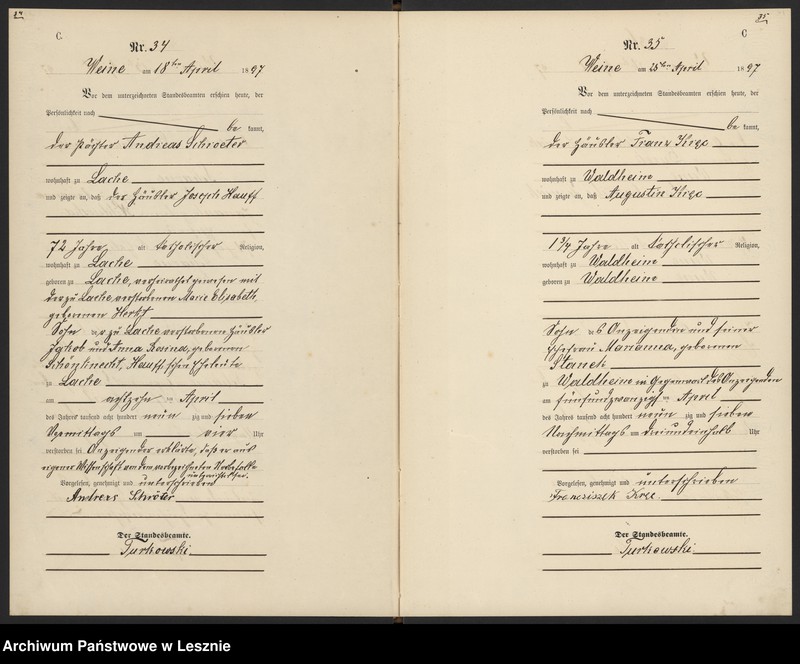 34
C.
Nr. 34
Weine am 18ten April 1897
Vor dem unterzeichneten Standesbeamten erschien heute, der
Persönlichkeit nach
be kannt,
der Pächter Andreas Schroeter
wohnhaft zu Lache
und zeigte an, daß der Häusler Joseph Hauff
72 Jahre alt katholischer Religion,
wohnhaft zu Lache
geboren zu Lache, verheirathet gewesen mit
der zu Lache verstorbenen Marie Elisabeth,
geborenen
Sohn der zu Lache verstorbenen Häusler
Jakob und Anna Rosina, geborenen
Schönknecht, Hauff'schen Eheleute
zu Lache
am achtzehn ten April
des Jahres tausend acht hundert neun zig und sieben
Vormittags um vier Uhr
verstorben sei Anzeigender erklärte, daß er aus
eigener Wissenschaft von dem vorbezeichneten Sterbefalle
unterrichtet sei.
Vorgelesen, genehmigt und unterschrieben
Andreas Schröter
Der Standesbeamte.
Turkowski
35
C
Nr. 35
Weine am 25ten April 1897
Vor dem unterzeichneten Standesbeamten erschien heute, der
Persönlichkeit nach
be kannt,
der Häusler Franz
wohnhaft zu Waldheine
und zeigte an, daß Augustin
1 3/4 Jahre alt katholischer Religion,
wohnhaft zu Waldheine
geboren zu Waldheine
Sohn des Anzeigenden und seiner
Ehefrau Marianna, geborenen
Stanek
zu Waldheine in Gegenwart des Anzeigenden
am fünfundzwanzig ten April
des Jahres tausend acht hundert neun zig und sieben
Nachmittags um dreiundeinhalb Uhr
verstorben sei
Vorgelesen, genehmigt und unterschrieben
Franciszek
Der Standesbeamte.
Turkowski
Archiwum Państwowe w Lesznie